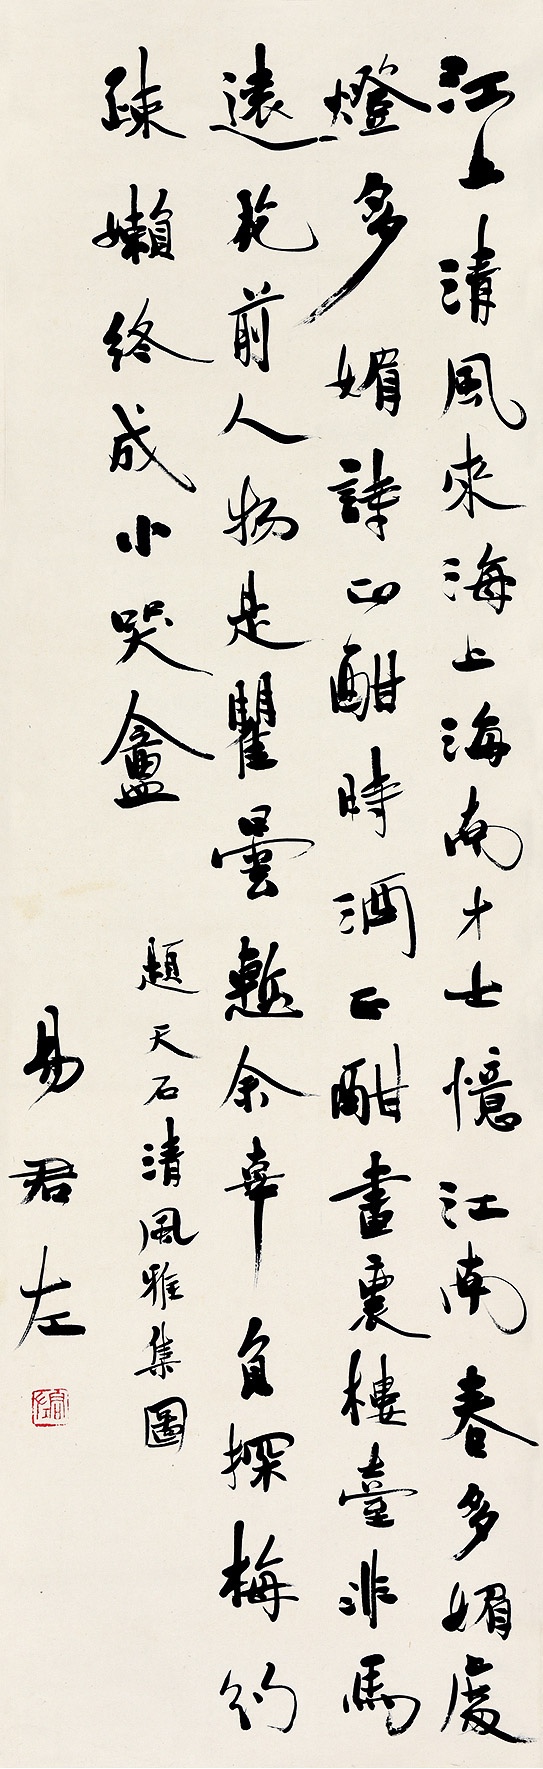 江上清風來海上海南才士憶江南春多媚處
燈多媚詩正酣時酒正酣畫裏樓臺非馬
遠花前人物是瞿曇慙余辜負探梅約
疎嬾終成小哭盦
題天石清風雅集圖
易君左